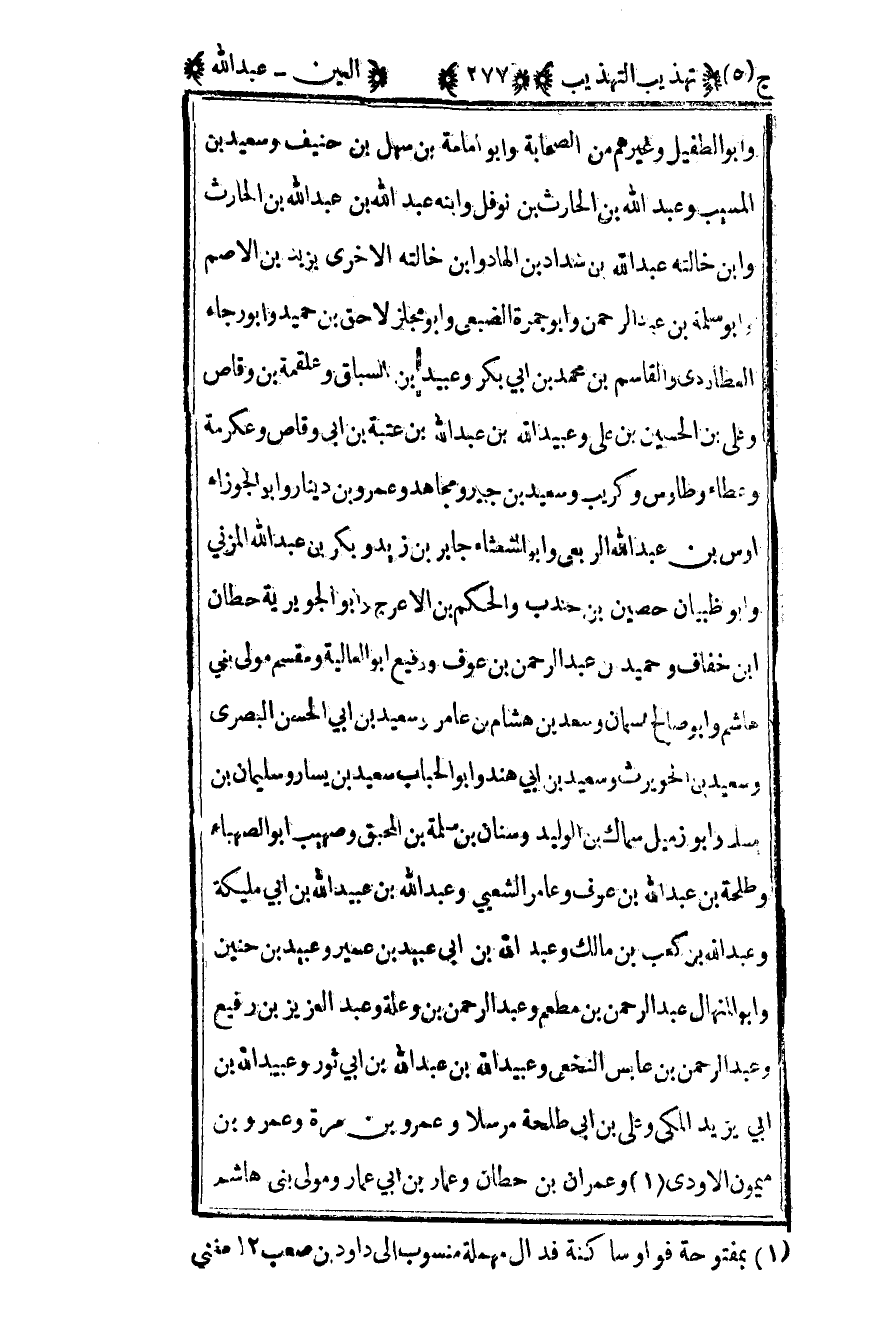 ج (٥) تهذيب التهذيب ٢٧٧ العين - عبدالله
وابو الطفيل وغيرهم من الصحابة وابو امامة بن سهل بن حنيف وسعيد بن
المسيب وعبد الله بن الحارث بن نوفل وابنه عبد الله بن عبدالله بن الحارث
وابن خالته عبدالله بن شداد بن الهاد وابن خالته الاخرى يزيد بن الاصم
وابو سلمة بن عبدالرحمن وابو جمرة الضبعى وابو مجلز لاحق بن حميد وابو رجاء
العطاردى والقاسم بن محمد بن ابي بكر وعبيد بن السباق وعلقمة بن وقاص
وعلى بن الحسين بن على وعبيدالله بن عبدالله بن عتبة بن ابى وقاص وعكرمة
وعطاء وطاوس وكريب وسعيد بن جبير ومجاهد وعمرو بن دينار وابو الجوزاء
اوس بن عبدالله الربعى وابو الشعثاء جابر بن زيد وبكر بن عبدالله المزني
وابو ظبيان حصين بن جندب والحكم بن الاعرج وابو الجويرية حطان
ابن خفاف وحميد بن عبدالرحمن بن عوف ورفيع ابو العالية ومقسم مولى بني
هاشم وابو صالح السمان وسعد بن هشام بن عامر وسعيد بن ابي الحسن البصرى
وسعيد بن الحويرث وسعيد بن ابي هند وابو الحباب سعيد بن يسار وسليمان بن
يسار وابو زميل سماك بن الوليد وسنان بن سلمة بن المحبق وصهيب ابو الصهباء
وطلحة بن عبدالله بن عوف وعامر الشعبي وعبدالله بن عبيدالله بن ابي مليكة
وعبدالله بن كعب بن مالك وعبد الله بن ابى عبيد بن عمير وعبيد بن حنين
وابو المنهال عبدالرحمن بن مطعم وعبدالرحمن بن وعلة وعبد العزيز بن رفيع
وعبدالرحمن بن عابس النخعى وعبيدالله بن عبدالله بن ابي ثور وعبيدالله بن
ابي يزيد المكى وعلى بن ابى طلحة مرسلا وعمرو بن مرة وعمرو بن
ميمون الاودى (١) وعمران بن حطان وعمار بن ابي عمار ومولى بنى هاشم
(١) بمفتوحة فواو ساكنة فدال مهملة منسوب الى داود بن صعب ١٢ مغني